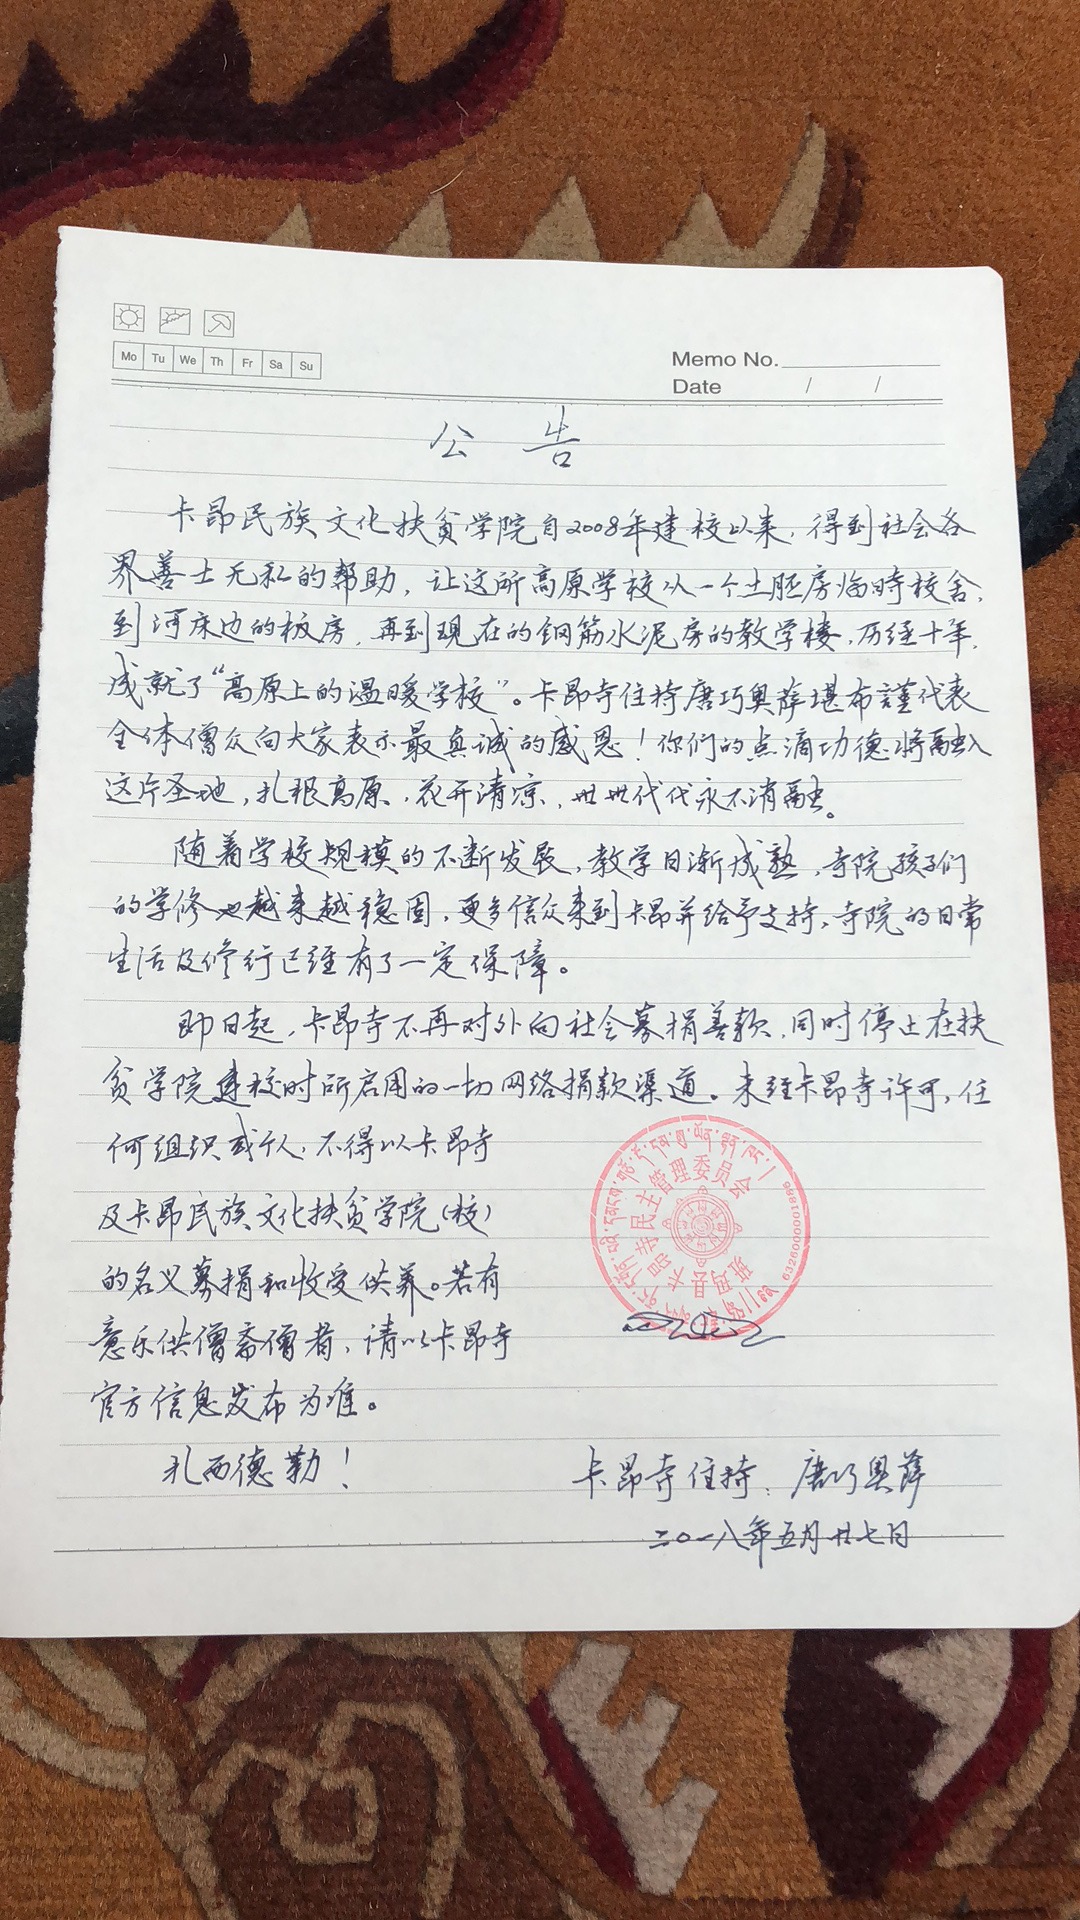 Mo Tu We Th Fr Sa Su
Memo No.
Date / /
公 告
卡昂民族文化扶贫学院自2008年建校以来，得到社会各
界善士无私的帮助，让这所高原学校从一个土胚房临时校舍，
到河床边的板房，再到现在的钢筋水泥房的教学楼，历经十年，
成就了“高原上的温暖学校”。卡昂寺住持唐巧奥萨堪布謹代表
全体僧众向大家表示最真诚的感恩！你们的点滴功德将融入
这片圣地，扎根高原，花开清凉，世世代代永不消融。
随着学校规模的不断发展，教学日渐成熟，寺院孩子们
的学修也越来越稳固，更多信众来到卡昂并给予支持，寺院的日常
生活及修行已经有了一定保障。
即日起，卡昂寺不再对外向社会募捐善款，同时停止在扶
贫学院建校时所启用的一切网络捐款渠道。未经卡昂寺许可，任
何组织或个人，不得以卡昂寺
及卡昂民族文化扶贫学院（校）
的名义募捐和收受供养。若有
意乐供僧斋僧者，请以卡昂寺
官方信息发布为准。
扎西德勒！
班玛县卡昂寺民主管理委员会
6326000001886
卡昂寺住持：唐巧奥萨
二〇一八年五月廿七日